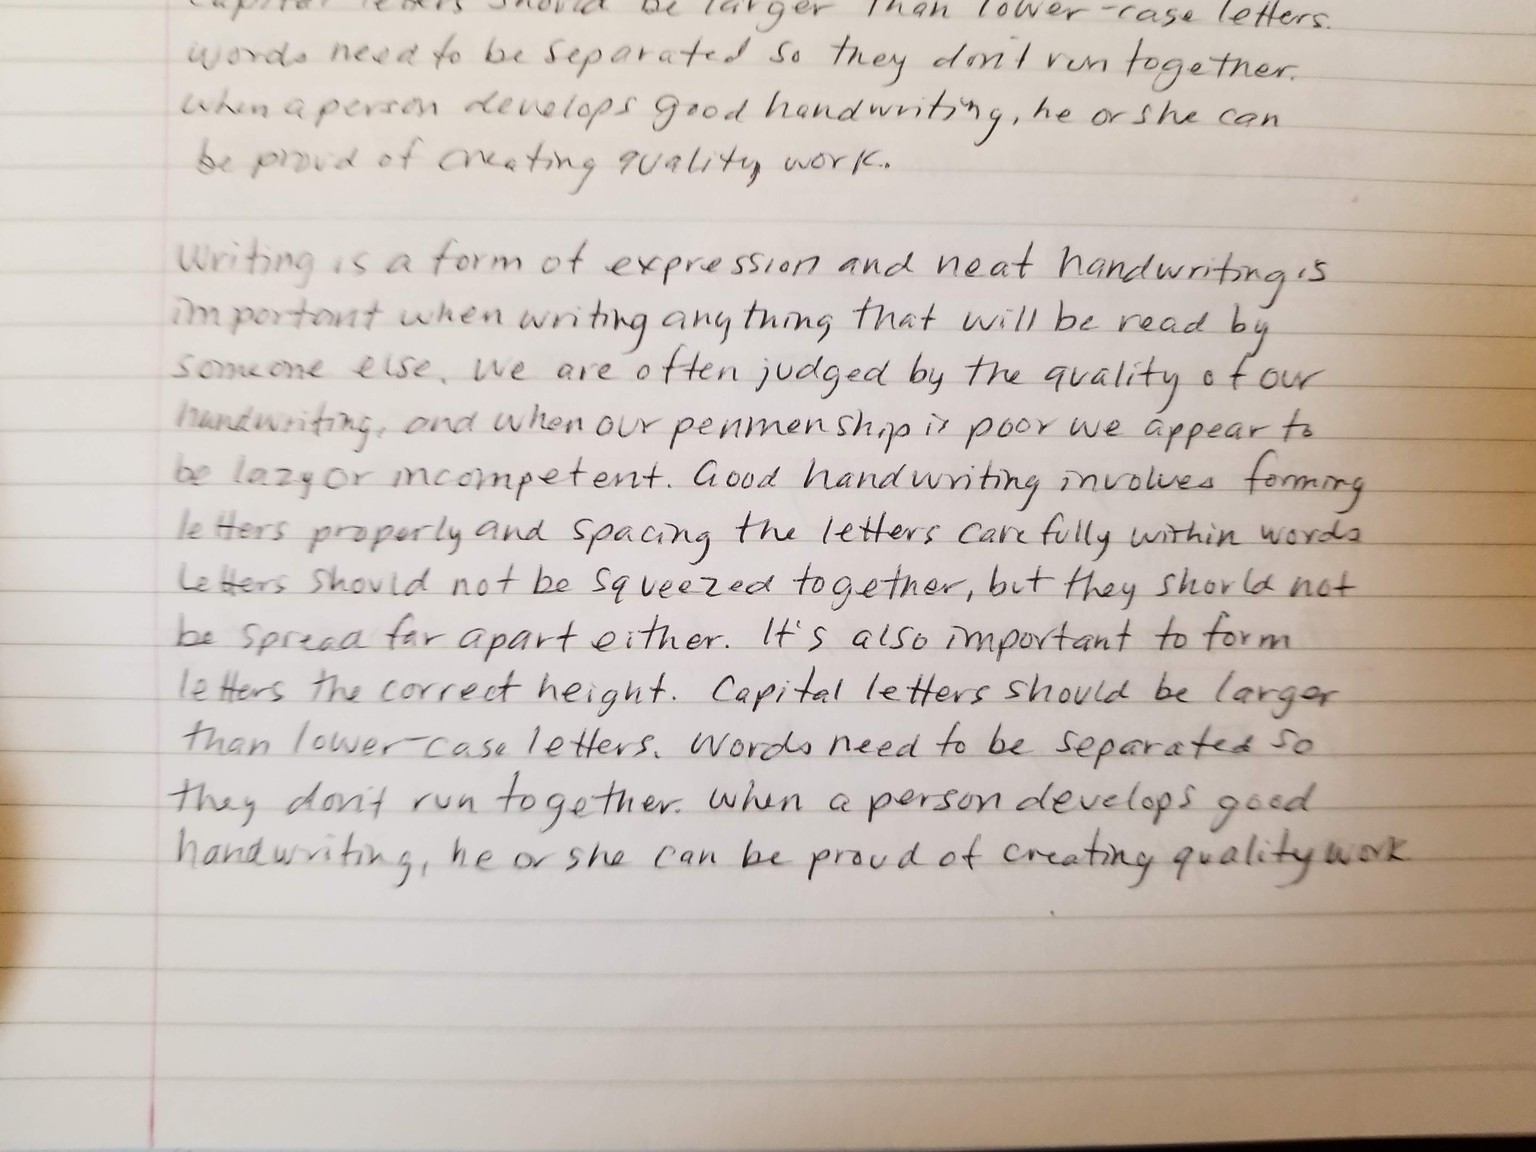 Capital letters should be larger than lower-case letters.
words need to be separated so they don't run together.
when a person develops good handwriting, he or she can
be proud of creating quality work.
Writing is a form of expression and neat handwriting is
important when writing anything that will be read by
someone else. We are often judged by the quality of our
handwriting, and when our penmenship is poor we appear to
be lazy or incompetent. Good handwriting involves forming
letters properly and spacing the letters carefully within words
Letters should not be squeezed together, but they should not
be spread far apart either. It's also important to form
letters the correct height. Capital letters should be larger
than lower-case letters. Words need to be separated so
they don't run together. When a person develops good
handwriting, he or she can be proud of creating quality work